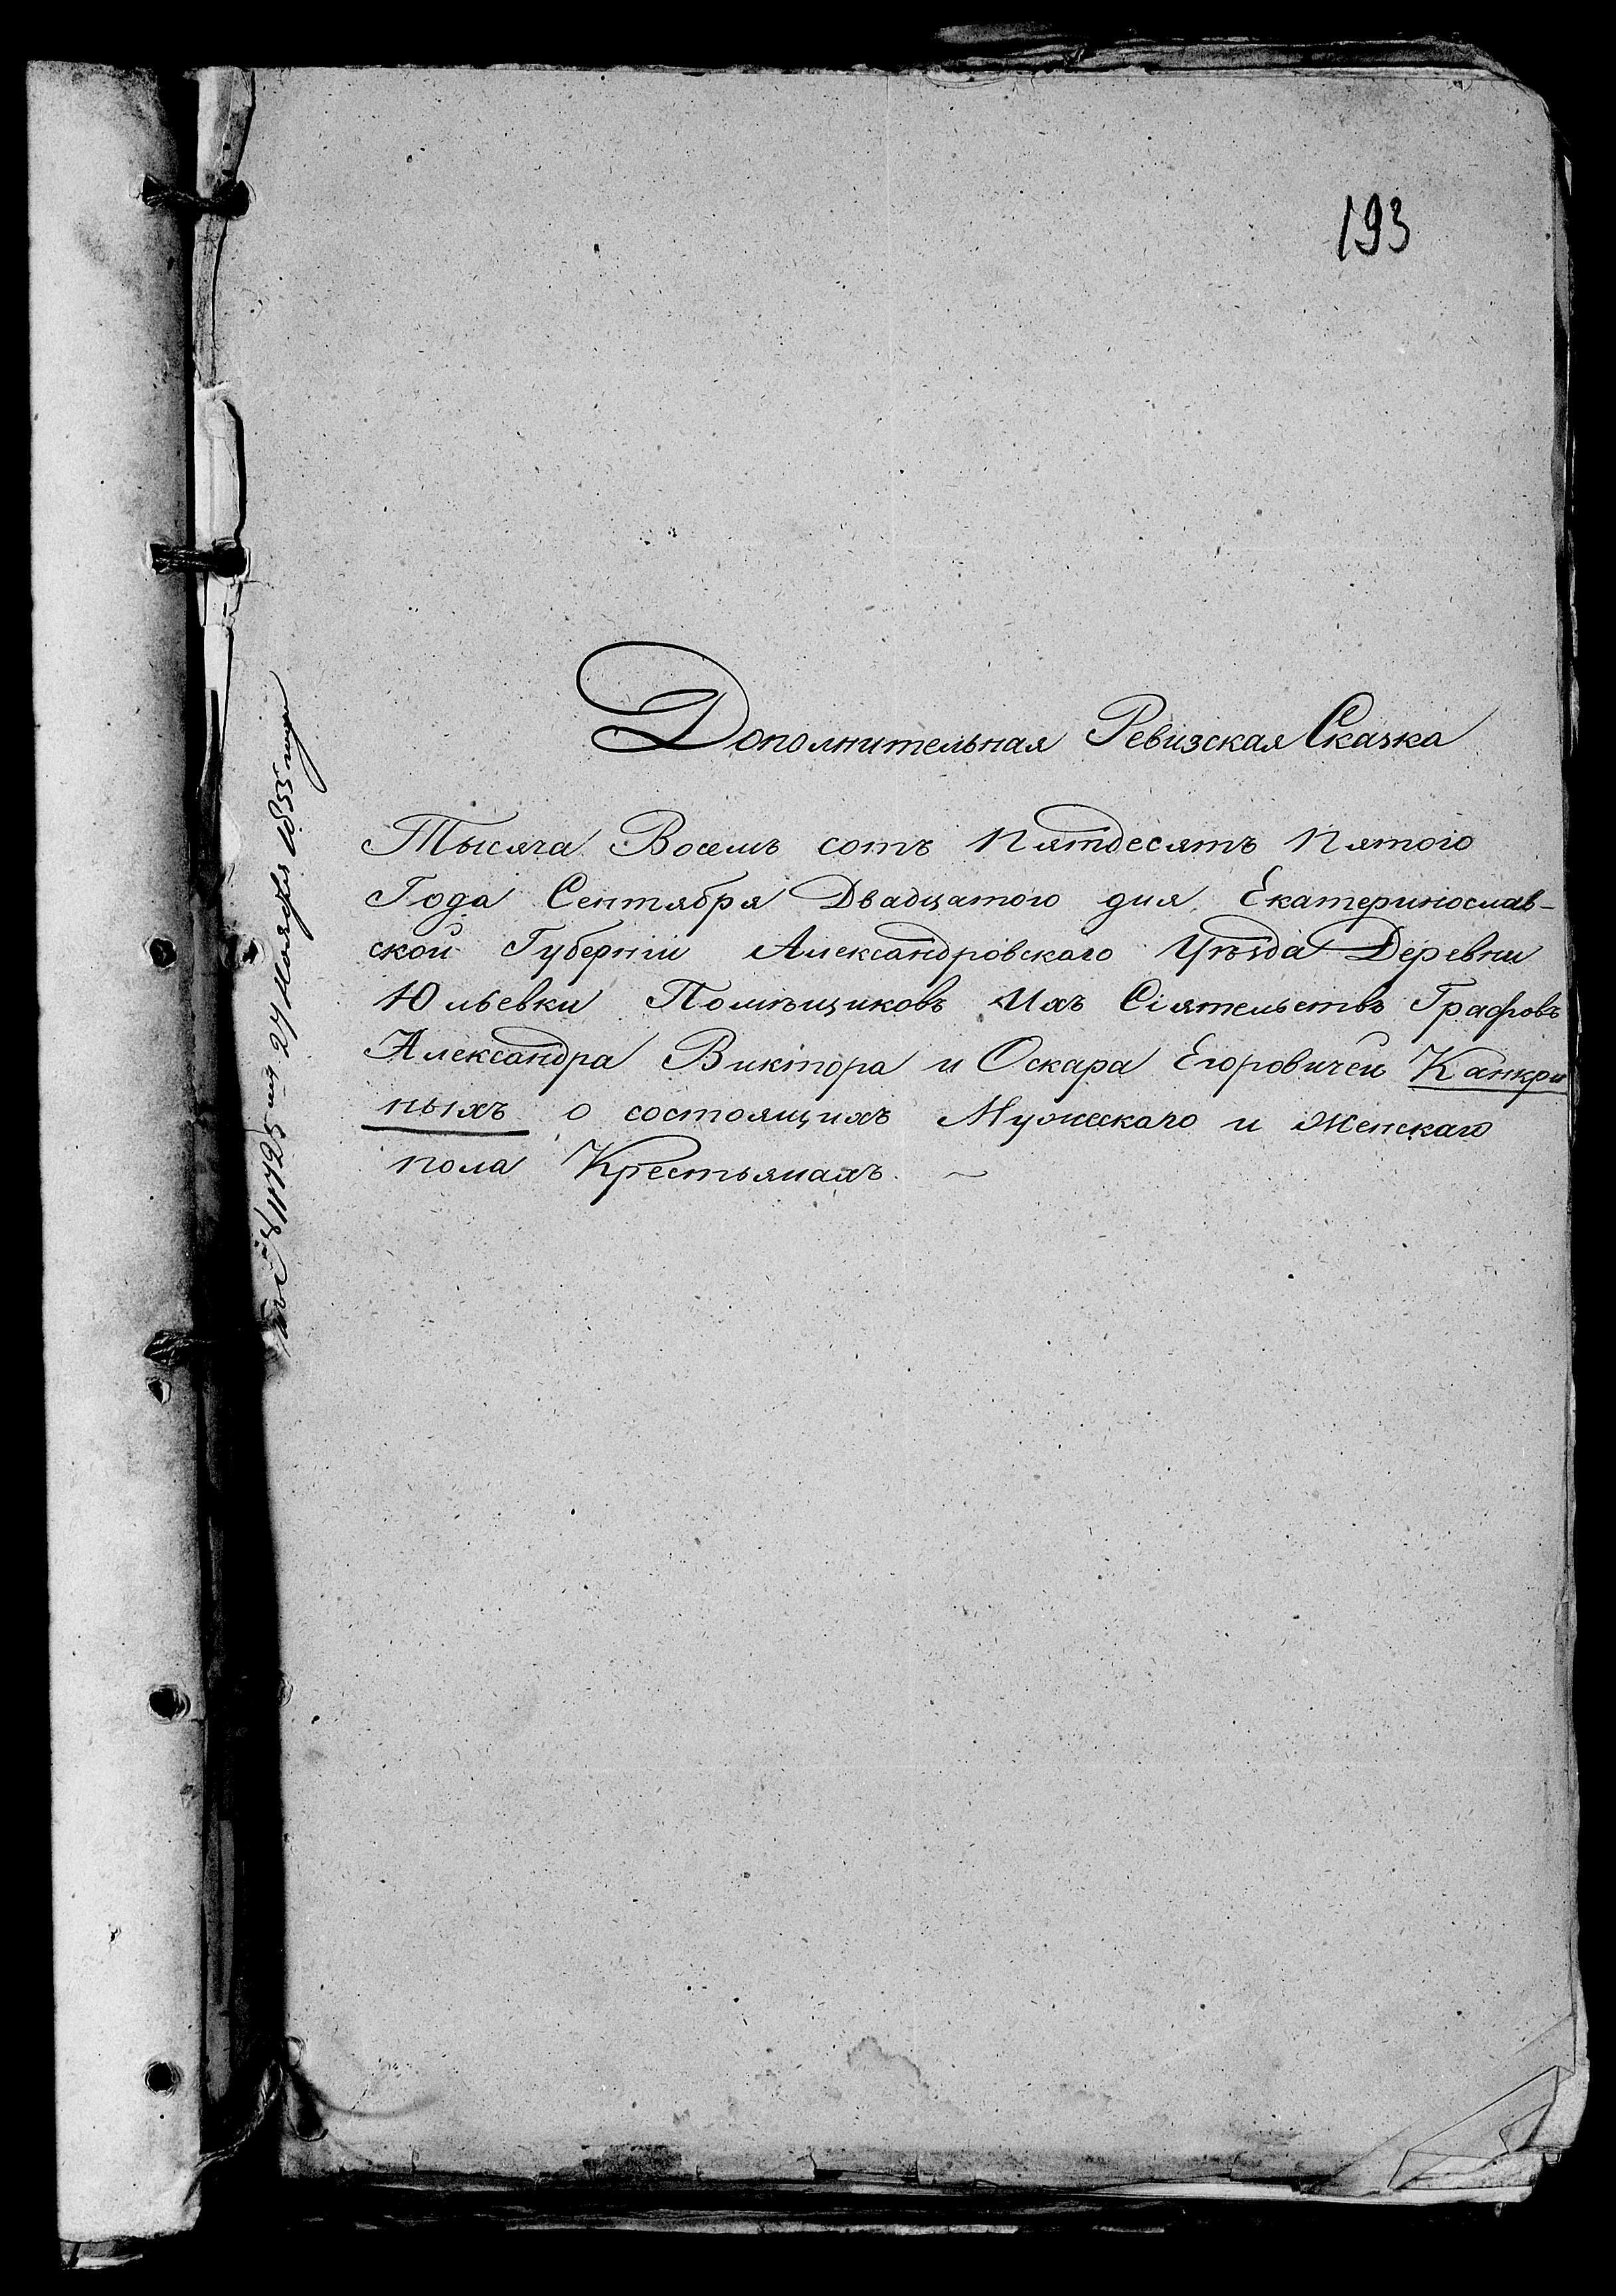 193
Дополнительная Ревизская Сказка
Тысяча Восемь сотъ Пятдесятъ Пятого
Года Сентября Двадцатого дня, Екатеринослав-
ской Губерніи Александровского Уѣзда Деревни
Юльевки Помѣщиковъ Ихъ Сіятельствъ Графовъ
Александра Виктора и Оскара Егоровичей Канкри
ныхъ о состоящихъ Мужескаго и Женскаго
пола Крестьянахъ. ~
№ 11725 27 Ноября 1855 года